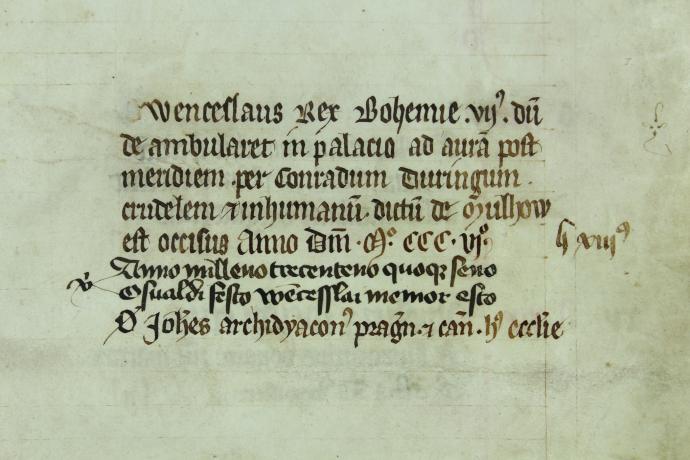 Wenceslaus Rex Bohemie .vijꝰ. dū
de ambularet in palacio ad aurā post
meridiem .per Conradum Duringum .
crudelem ⁊ inhumanū . dictū de Mulhow
est occisus Anno Dnī . Mͦ. CCC . vjͦ.
Anno milleno trecenteno quoqꝫ seno
v̓ Osualdi festo wēcesslai memor esto
O' Joh̄es archidyaconꝰ prag̅n̅ . ⁊ can̄ . hꝰ eccl̄ie